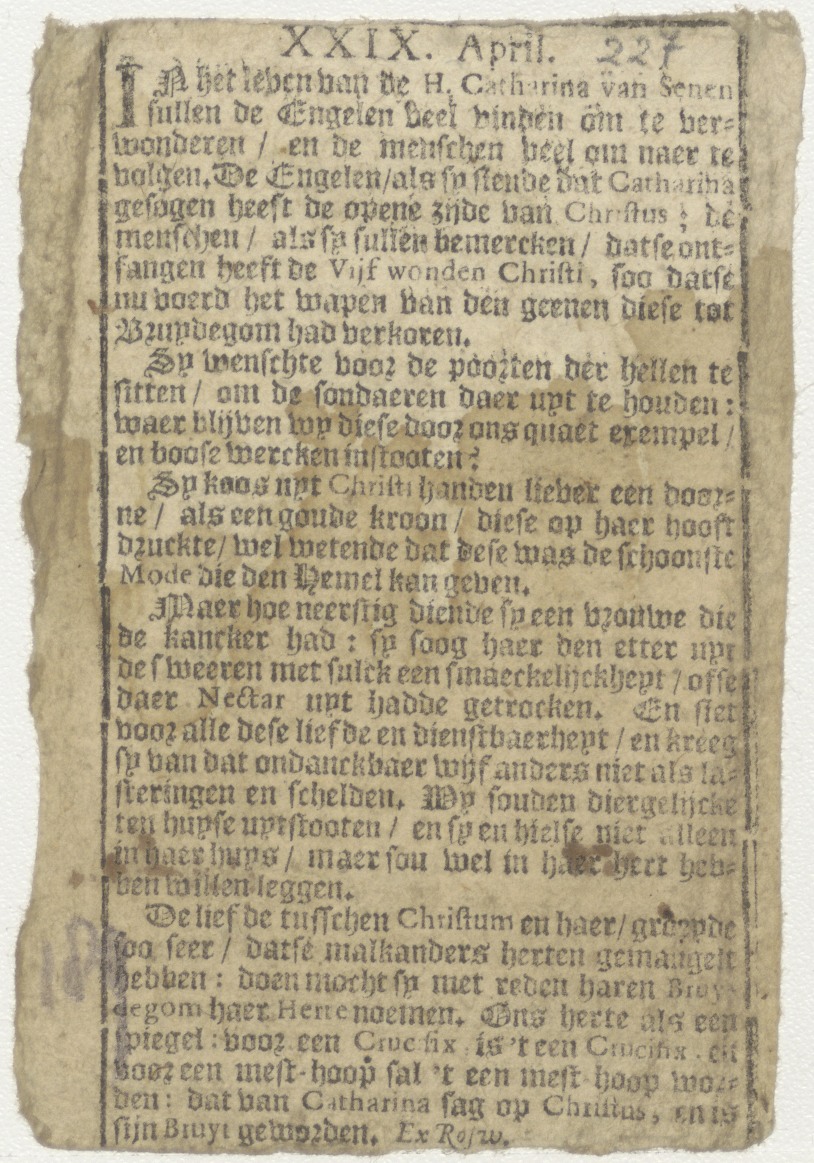 XXIX. April. 227
IN het leven van de H. Catharina van Senen
sullen de Engelen veel vinden om te ver-
wonderen / en de menschen veel om naer te
volgen. De Engelen / als sy siende dat Catharina
gesogen heeft de opene zijde van Christus ; de
menschen / als sy sullen bemercken / datse ont-
fangen heeft de Vijf wonden Christi, soo datse
nu voerd het wapen van den geenen diese tot
Bruydegom had verkoren.
Sy wenschte voor de poorten der hellen te
sitten / om de sondaeren daer uyt te houden :
waer blijven wy diese door ons quaet exempel /
en boose wercken instooten ?
Sy koos uyt Christi handen liever een door-
ne / als een goude kroon / diese op haer hooft
druckte / wel wetende dat dese was de schoonste
Mode die den Hemel kan geven.
Maer hoe neerstig diende sy een vrouwe die
de kancker had : sy soog haer den etter uyt
de sweeren met sulck een smaeckelijckheyt / ofse
daer Nectar uyt hadde getrocken. En siet
voor alle dese liefde en dienstbaerheyt / en kreeg
sy van dat ondanckbaer wijf anders niet als la-
steringen en schelden. Wy souden diergelijcke
ten huyse uytstooten / en sy en hielse niet alleen
in haer huys / maer sou wel in haer hert heb-
ben willen leggen.
De liefde tusschen Christum en haer / groeyde
soo seer / datse malkanders herten gemangelt
hebben : doen mocht sy met reden haren Bruy-
degom haer Herte noemen. Ons herte als een
spiegel : voor een Crucifix is 't een Crucifix, en
voor een mest-hoop sal 't een mest-hoop wor-
den : dat van Catharina sag op Christus, en is
sijn Bruyt geworden. Ex Rosw.